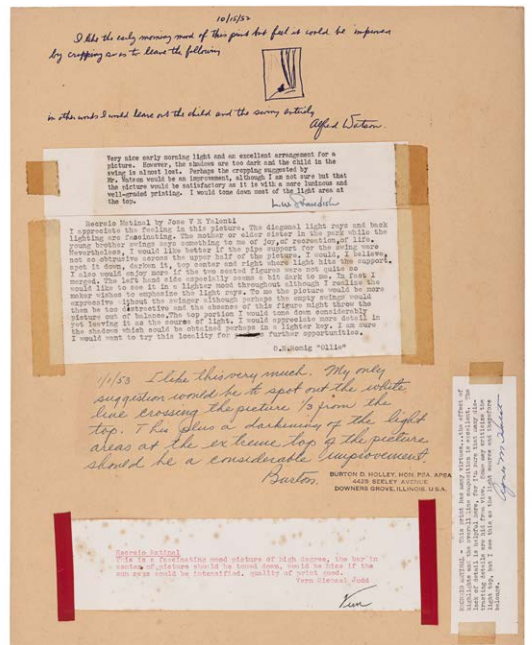 10/15/52
I like the early morning mood of this print but feel it could be improved
by cropping so as to leave the following
in other words I would leave out the child and the swing entirely
Alfred Watson.
Very nice early morning light and an excellent arrangement for a
picture. However, the shadows are too dark and the child in the
swing is almost lost. Perhaps the cropping suggested by
Mr. Watson would be an improvement, although I am not sure but that
the picture would be satisfactory as it is with a more luminous and
well-graded printing. I would tone down most of the light area at
the top.
Recreio Matinal by Jose V E Yalenti
I appreciate the feeling in this picture. The diagonal light rays and back
lighting are fascinating. The mother or elder sister in the park while the
young brother swings says something to me of joy, of recreation, of life.
Nevertheless, I would like better if the pipe support for the swing were
not so obtrusive across the upper half of the picture. I would, I believe,
spot it down, darken it, top center and right where light hits the support.
I also would enjoy more if the two seated figures were not quite so
merged. The left hand side especially seems a bit dark to me. In fact I
would like to see it in a lighter mood throughout although I realize the
maker wishes to emphasize the light rays. To me the picture would be more
expressive without the swinger although perhaps the empty swings would
then be too distractive and the absence of this figure might throw the
picture out of balance. The top portion I would tone down considerably
yet leaving it as the source of light. I would appreciate more detail in
the shadows which could be obtained perhaps in a lighter key. I am sure
I would want to try this locality for further opportunities.
O.M.Bonig "Ollie"
1/1/53 I like this very much. My only
suggestion would be to spot out the white
line crossing the picture 1/3 from the
top. This plus a darkening of the light
areas at the extreme top of the picture
should be a considerable improvement.
Burton.
BURTON D. HOLLEY, HON. PSA, APSA
4425 SEELEY AVENUE
DOWNERS GROVE, ILLINOIS, U.S.A.
Recreio Matinal
This is a fascinating mood picture of high degree, the bar in
center of picture should be toned down, would be nice if the
sun rays would be intensified. quality of print good.
Vern Michael Judd
Vern
RECREIO MATINAL - This print has many virtues...the effect of
highlights and the overall line composition is excellent. The
lack of detail is helpful here, for I'm sure that many dis-
tracting details are hid from view. Some may criticize the
light top, but I see this as the light source and therefore
belongs.